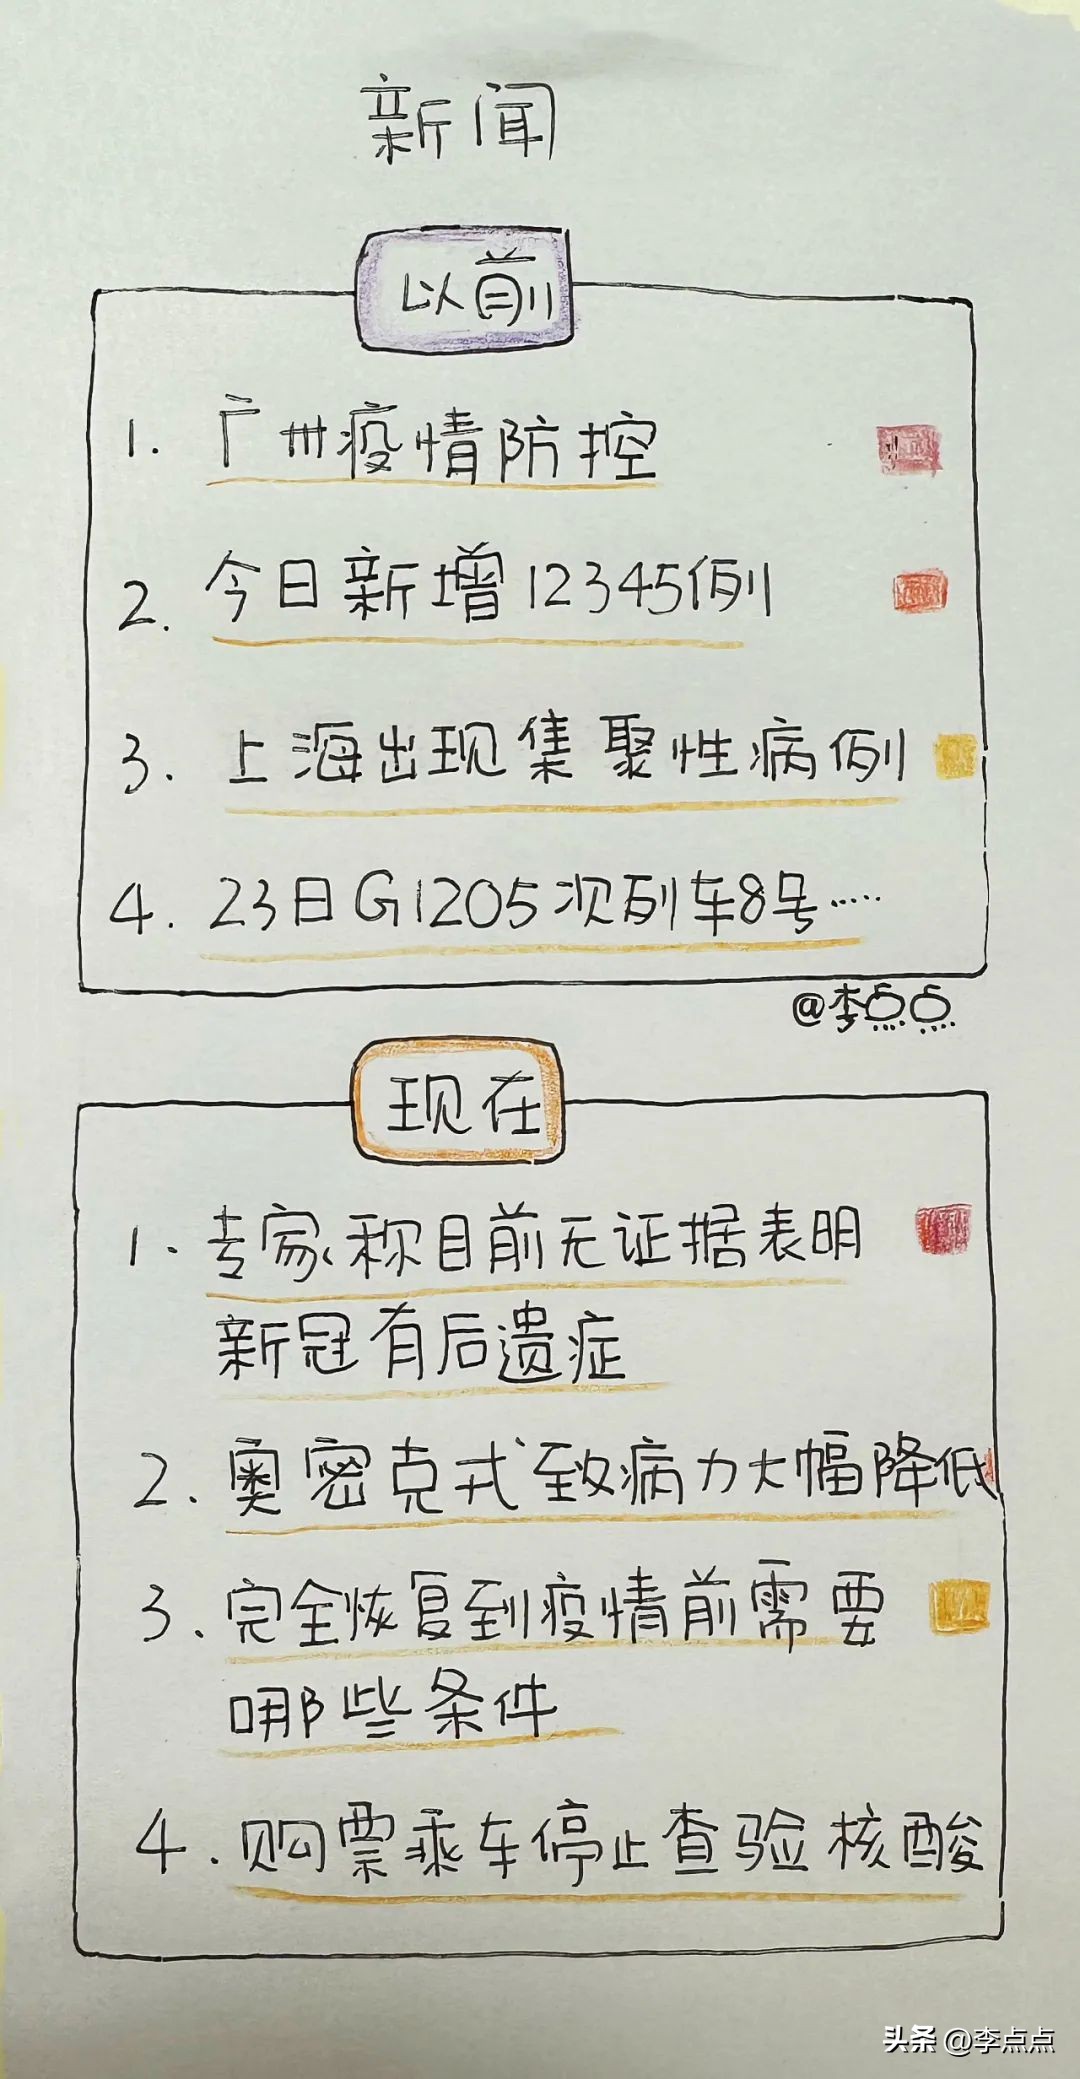 新闻
以前
1. 广州疫情防控
2. 今日新增12345例
3. 上海出现集聚性病例
4. 23日G1205次列车8号……
@李点点
现在
1. 专家称目前无证据表明
新冠有后遗症
2. 奥密克戎致病力大幅降低
3. 完全恢复到疫情前需要
哪些条件
4. 购票乘车停止查验核酸
头条 @李点点